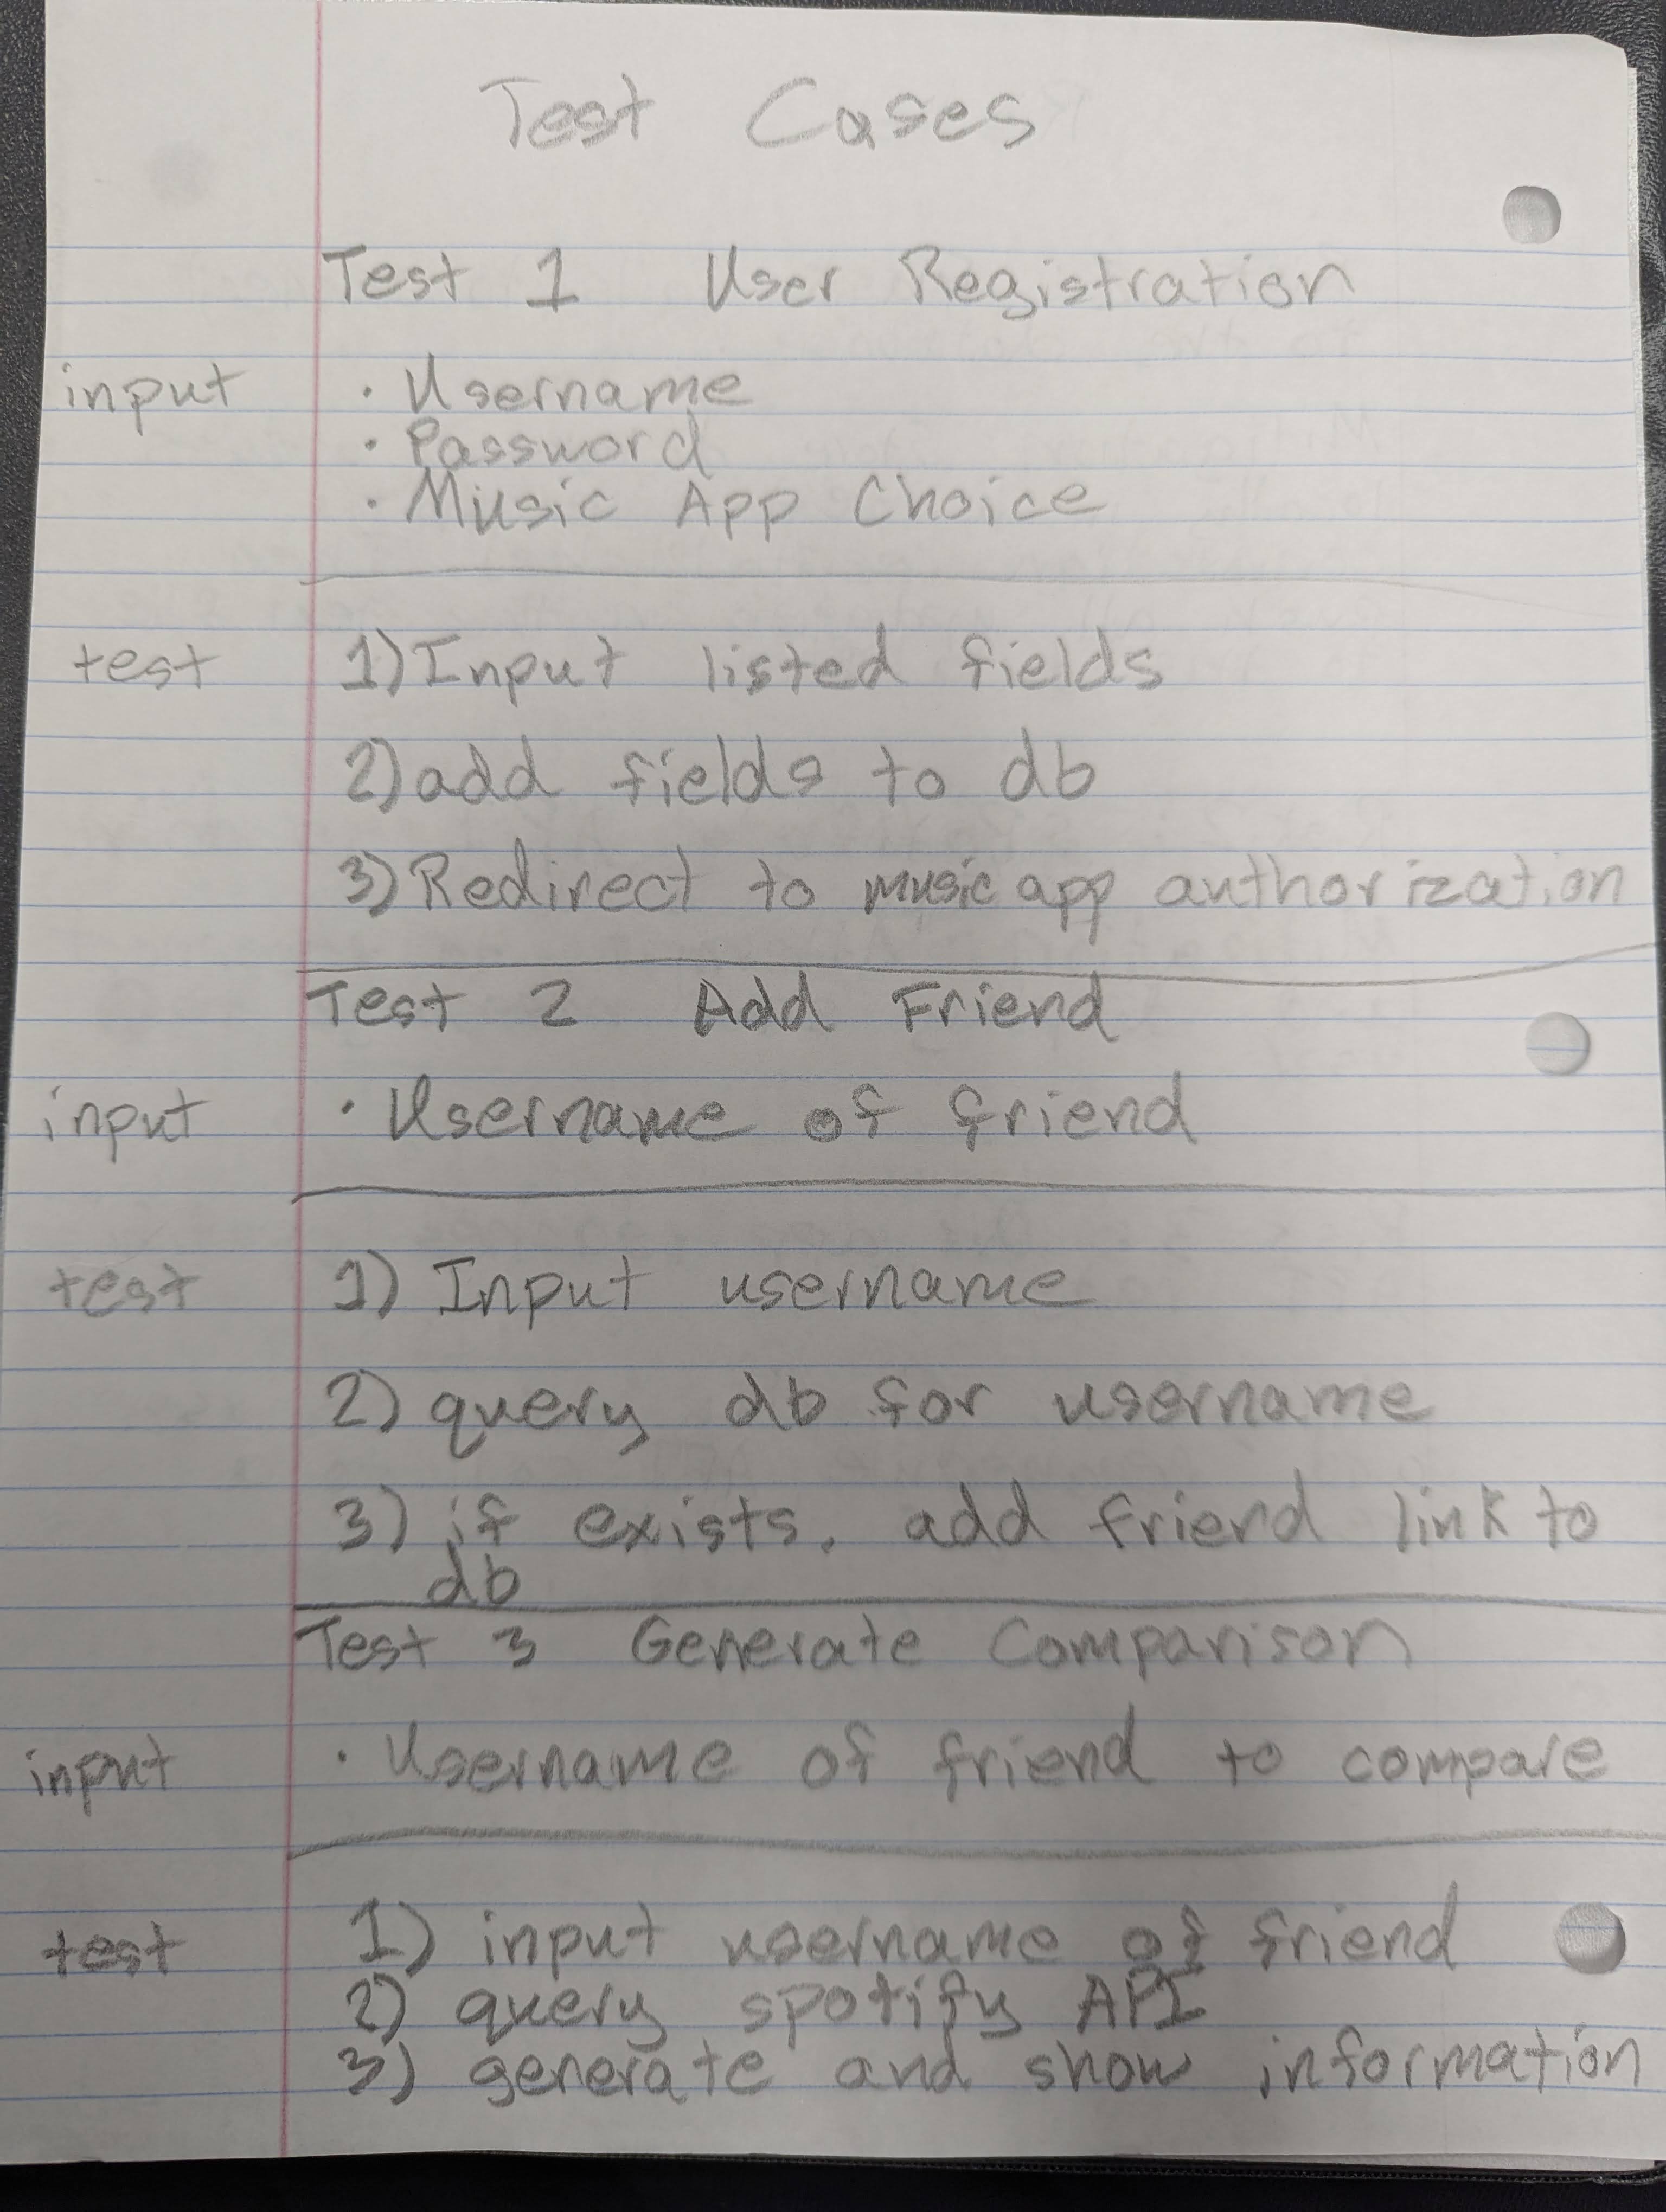 Test Cases
Test 1 User Registration
input · Username
· Password
· Music App Choice
test 1) Input listed fields
2) add fields to db
3) Redirect to music app authorization
Test 2 Add Friend
input · Username of friend
test 1) Input username
2) query db for username
3) if exists, add friend link to
db
Test 3 Generate Comparison
input · Username of friend to compare
test 1) input username of friend
2) query spotify API
3) generate and show information